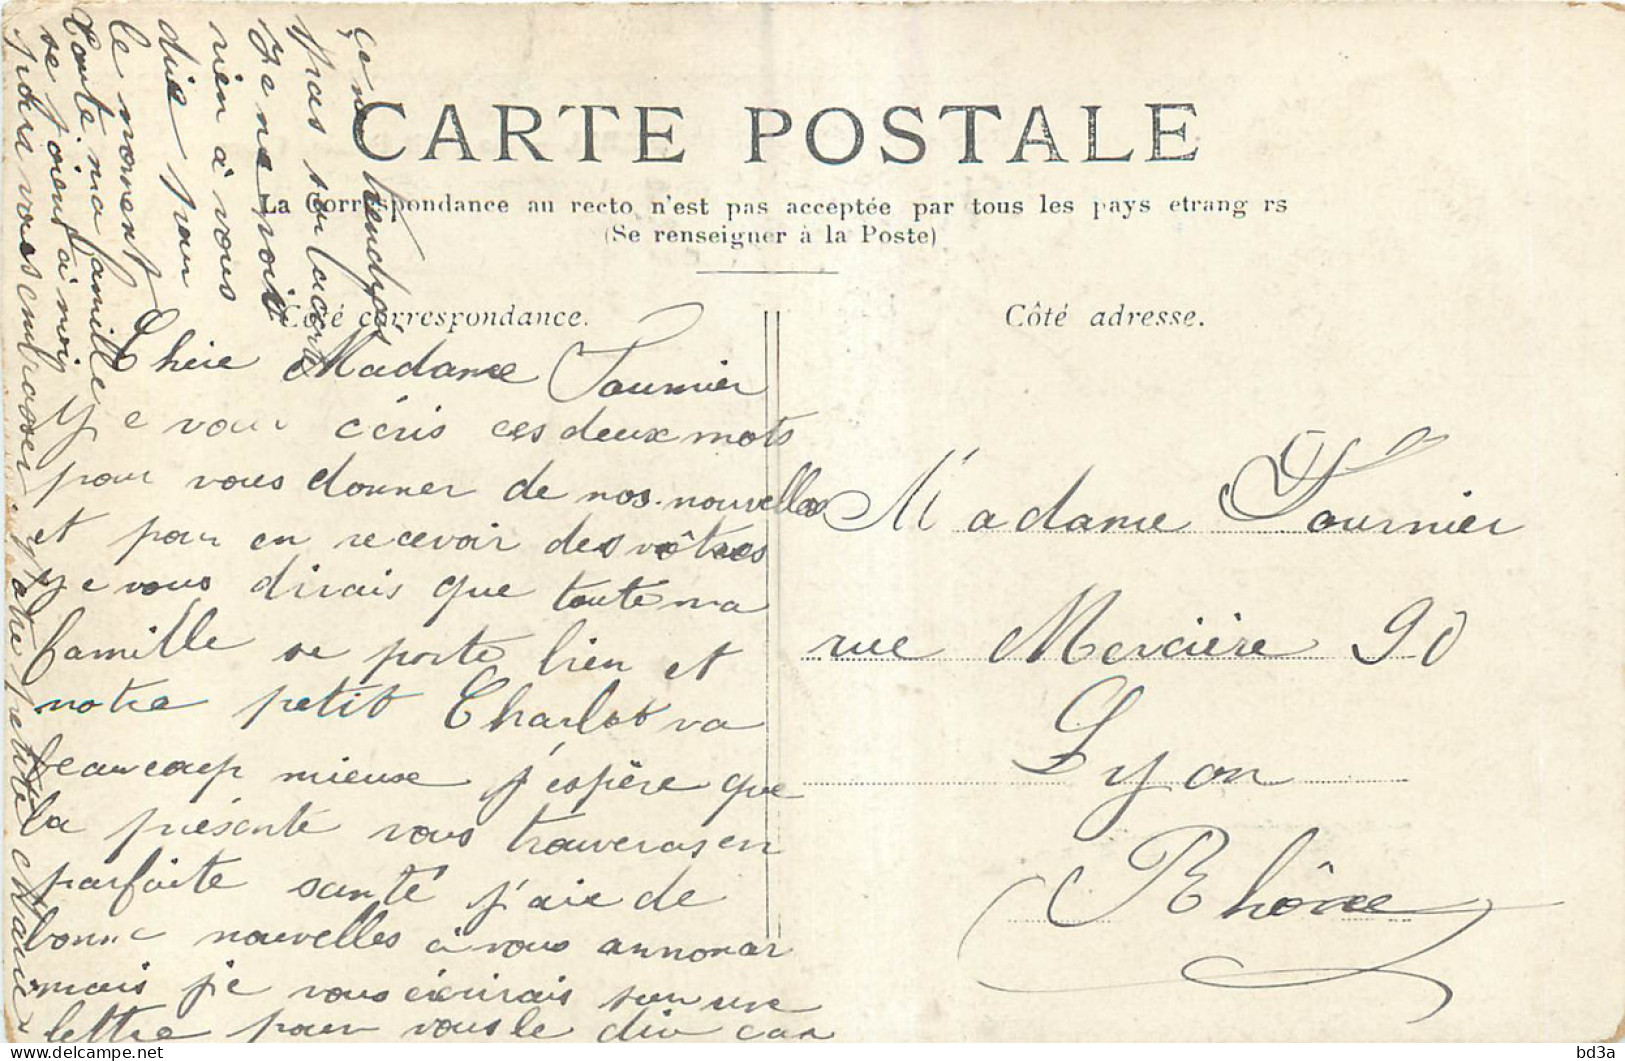 CARTE POSTALE
La Correspondance au recto n'est pas acceptée par tous les pays etrang rs
(Se renseigner à la Poste)
Côté correspondance.
Côté adresse.
Chère Madame Fournier
Je vous écris ces deux mots
pour vous donner de nos nouvelles
et pour en recevoir des vôtres
je vous dirais que toute ma
famille se porte bien et
notre petit Charlot va
beaucoup mieux j'espère que
la présente vous trouveras en
parfaite santé j'aie de
bonne nouvelles à vous annoncer
mais je vous écrirais sur une
lettre pour vous le dir car
ça n'
pas sur la carte
Je ne vois
rien à vous
dire pour
le moment
Toute ma famille
se joient à moi
pour vous embrasser.
Votre petite Marie
Madame Fournier
rue Mercière 90
Lyon
Rhône
bd3a